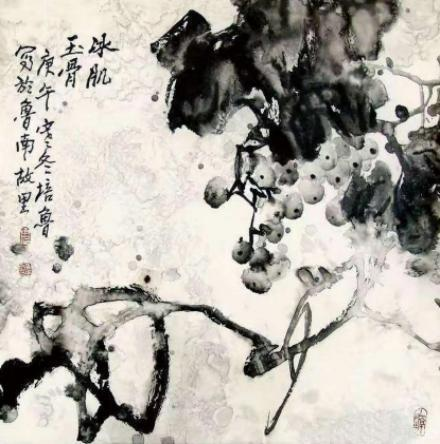 冰肌
玉骨
庚午寒冬培鲁
写於鲁南故里